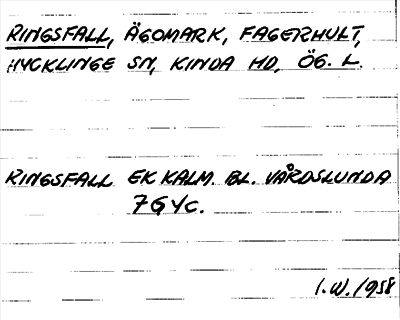 RINGSFALL, ÄGOMARK, FAGERHULT,
HYCKLINGE SN, KINDA HD, ÖG. L.
RINGSFALL EK KALM. BL. VÅRDSLUNDA
7G4C.
I.W. 1958